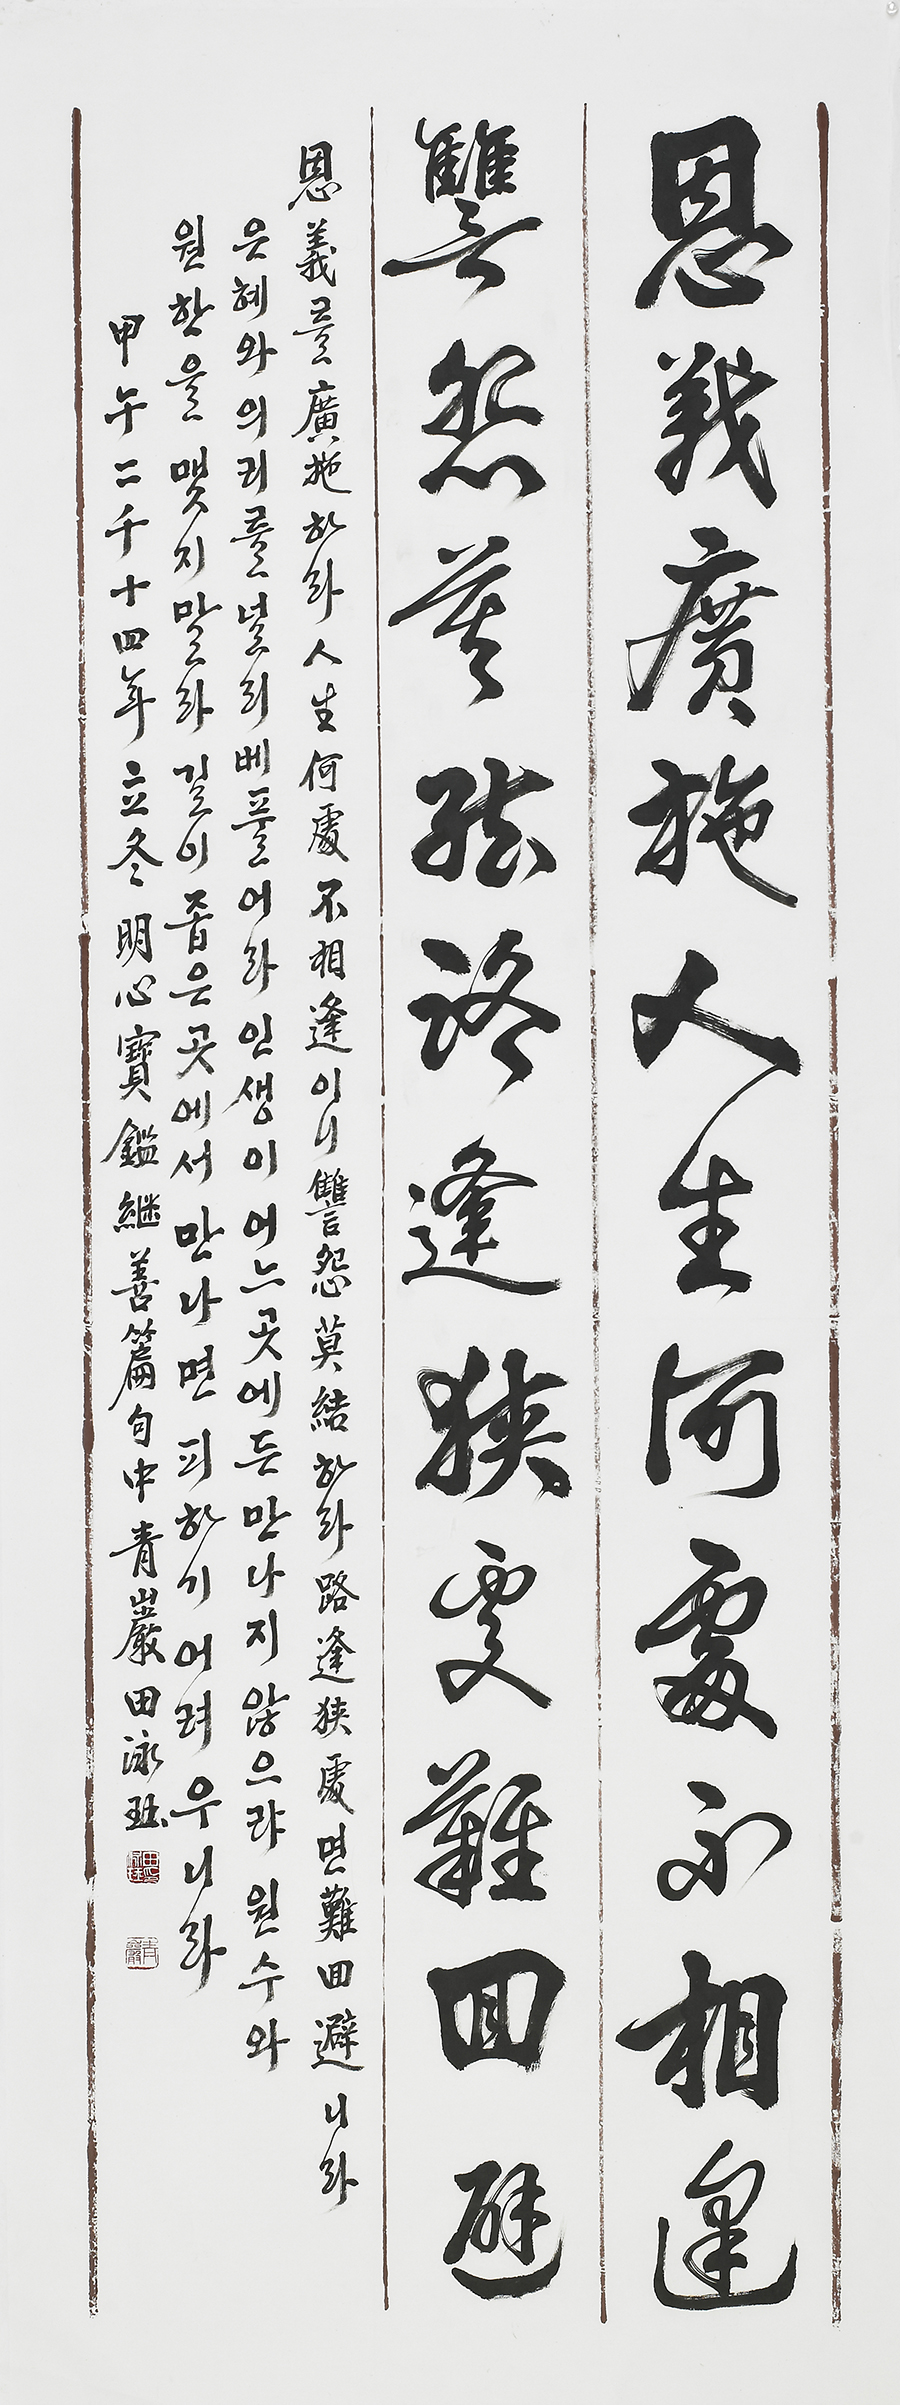 恩義廣施人生何處不相逢
讐怨莫結路逢狹處難回避
恩義를廣施하라人生何處不相逢이니讐怨莫結하라路逢狹處면難回避니라
은혜와의리를널리베풀어라인생이어느곳에든만나지않으랴원수와
원한을맺지말라길이좁은곳에서만나면피하기어려우니라
甲午二千十四年立冬明心寶鑑繼善篇句中青巖田泳珏